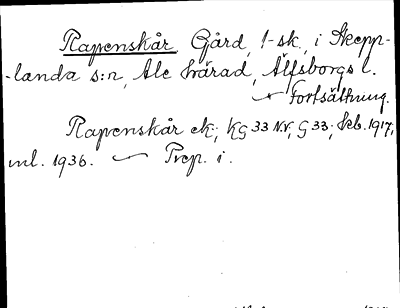 Rapenskår Gård, 1-sk, i Skepp-
-landa s:n, Ale härad, Älfsborgs l.
Fortsättning.
Rapenskår ek; KG 33 NV, G 33; Skb. 1917;
ml. 1936. — Prep. i.